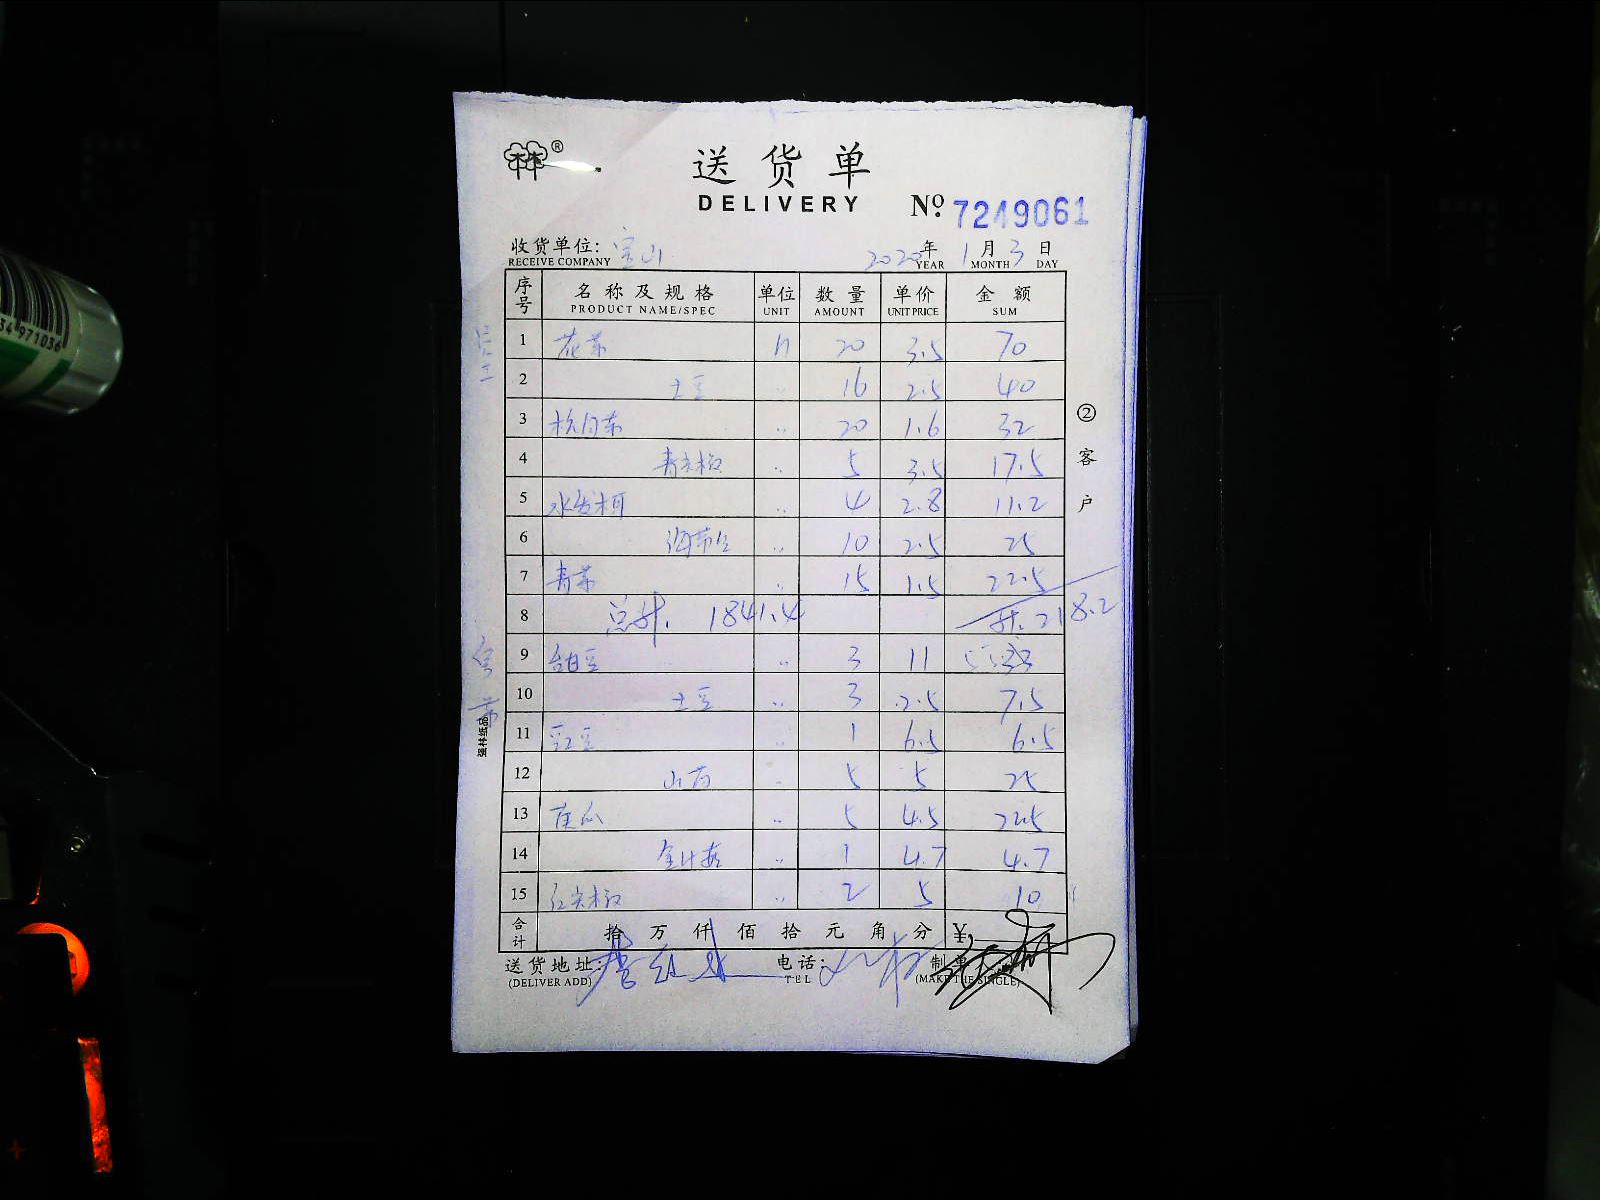 送货单
DELIVERY
№ 7249061
收货单位: 宝山 2020年 1月 3日
RECEIVE COMPANY YEAR MONTH DAY
序号 名称及规格 单位 数量 单价 金额
PRODUCT NAME/SPEC UNIT AMOUNT UNIT PRICE SUM
1 花菜 20 3.5 70
2 土豆 16 2.5 40
3 杭白菜 20 1.6 32
4 青尖椒 5 3.5 17.5
5 水发木耳 4 2.8 11.2
6 海带 10 2.5 25
7 青菜 15 1.5 22.5
8 总计. 1841.4 计. 218.2
9 3 11
10 土豆 3 2.5 7.5
11 豇豆 1 6.5 6.5
12 山药 5 5 25
13 黄瓜 5 4.5 22.5
14 金针菇 1 4.7 4.7
15 红尖椒 2 5 10
合计 拾 万 仟 佰 拾 元 角 分 ¥
送货地址: 电话: 制单
(DELIVER ADD) TEL (MAKE THE SINGLE)
② 客户
强林纸品
34 971036